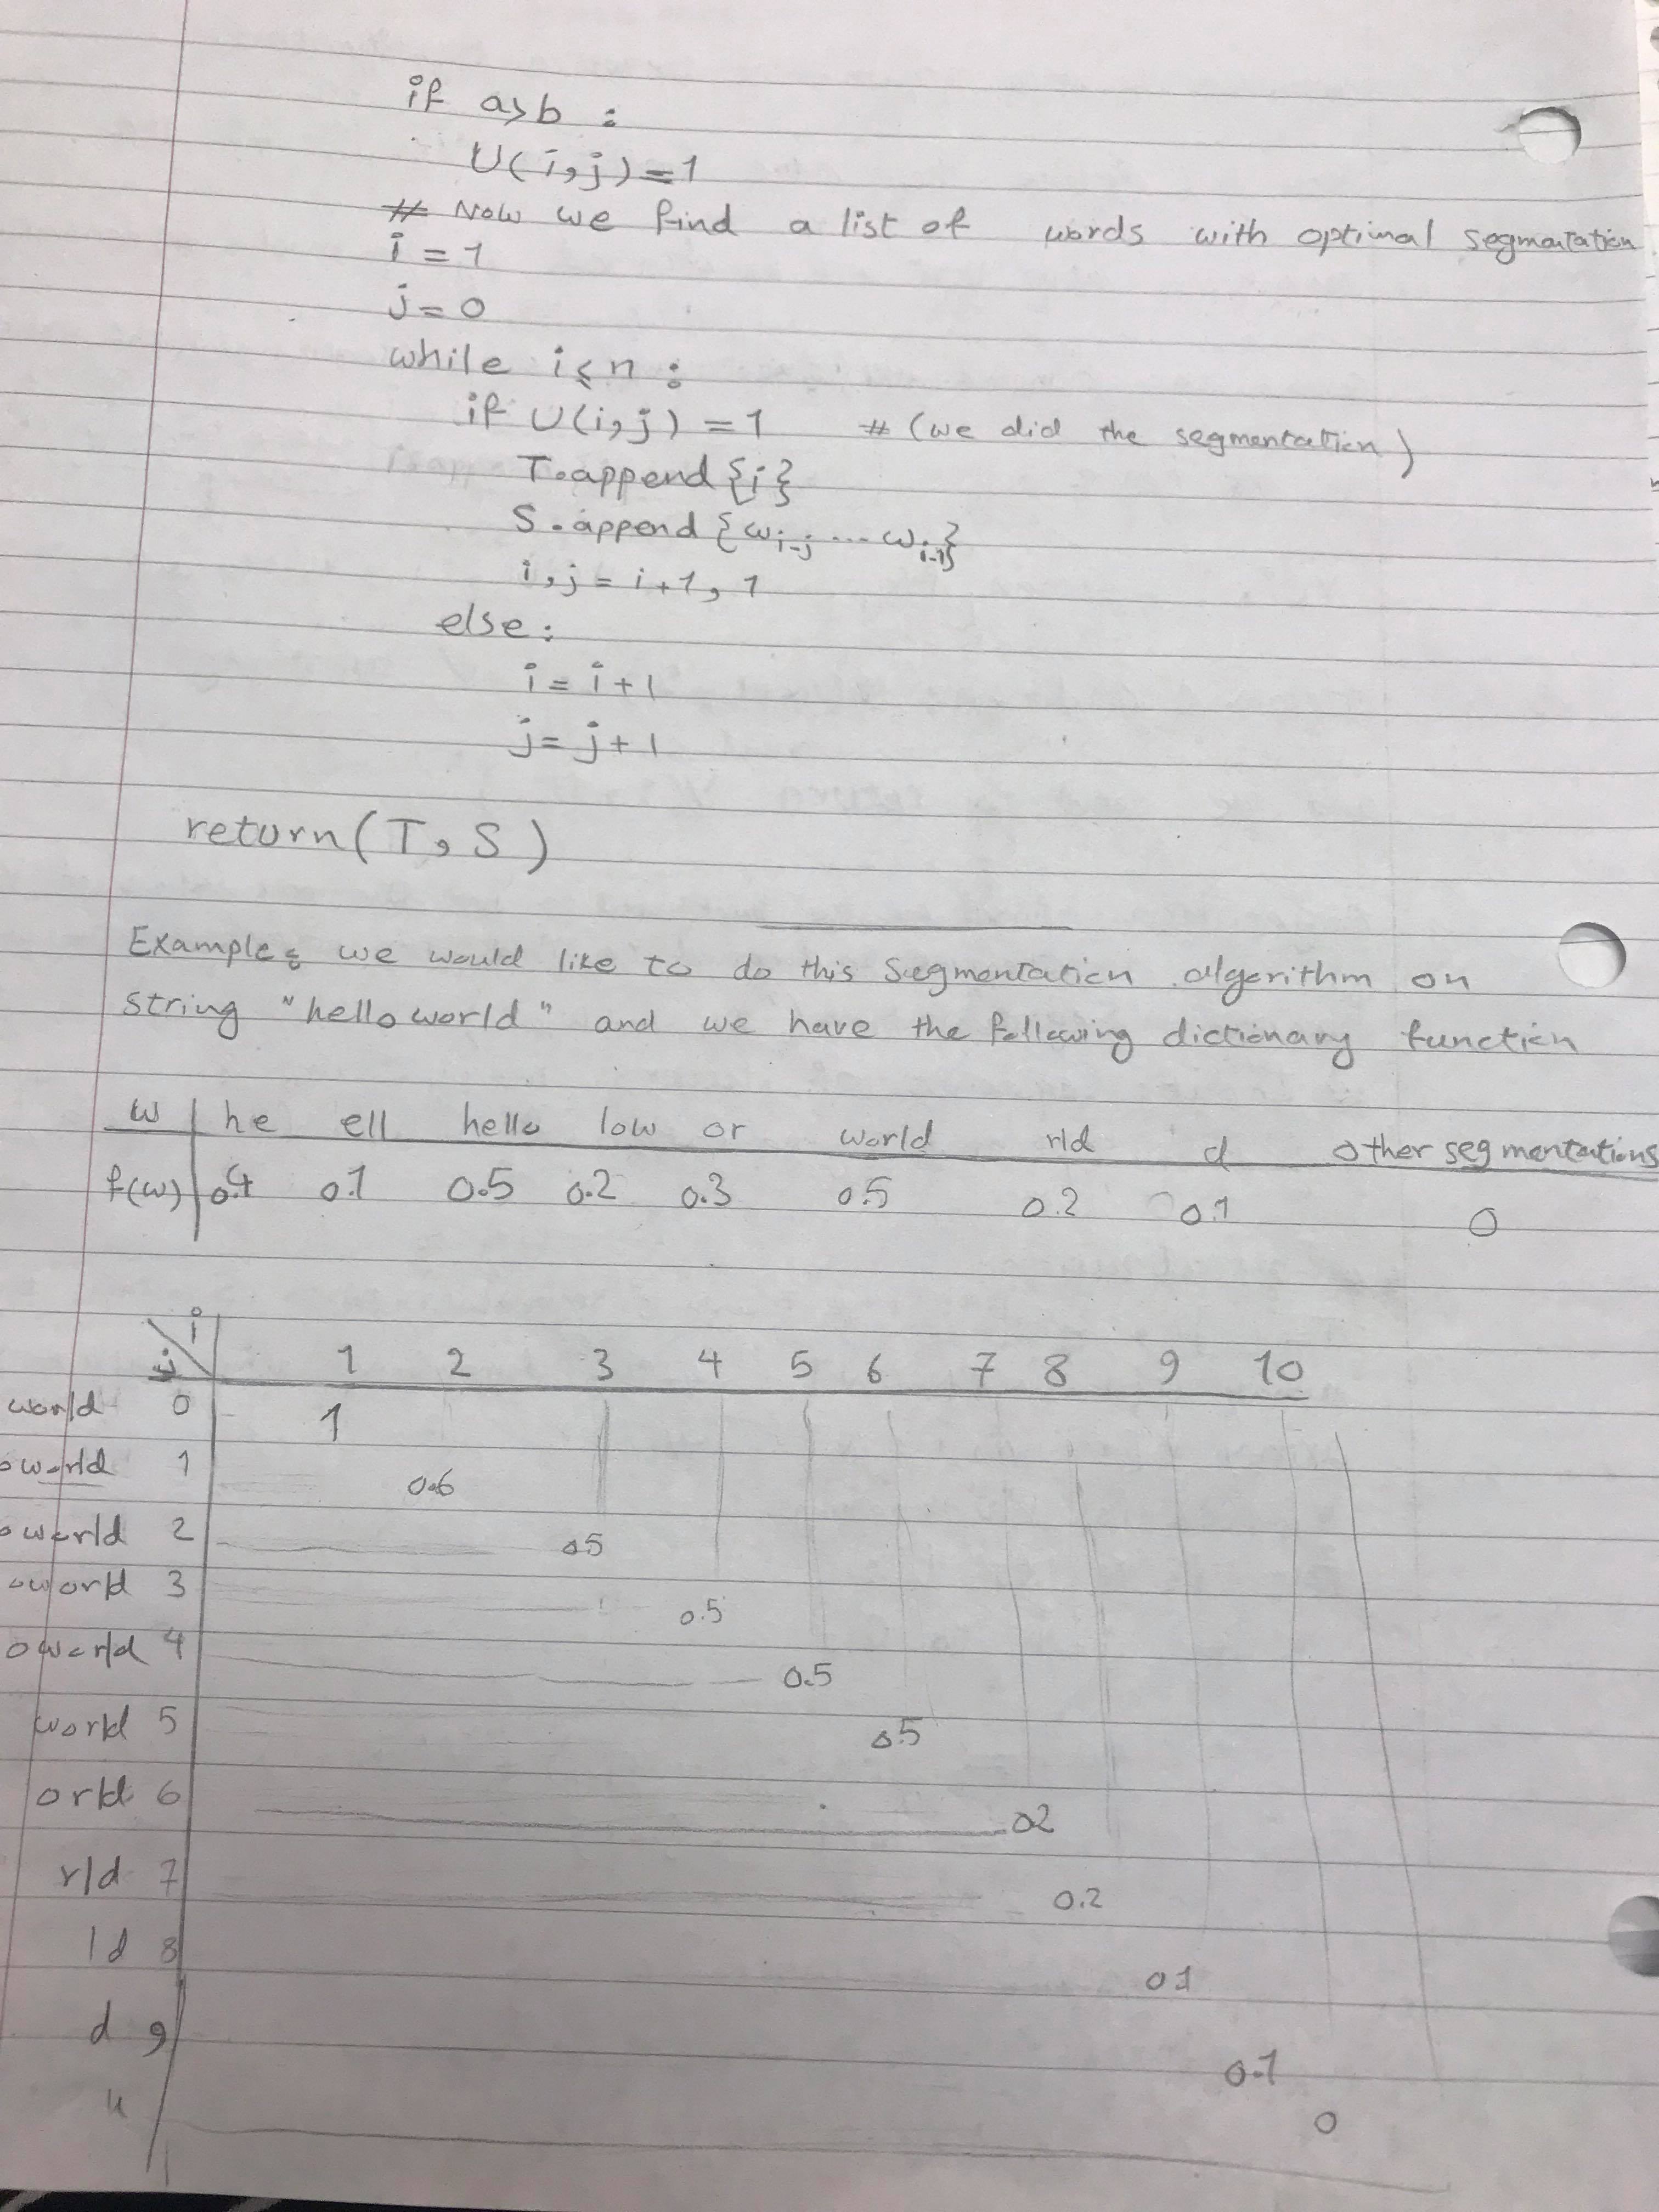 if a>b :
U(i,j)=1
# Now we find a list of words with optimal segmentation
i = 1
j = 0
while i≤n :
if U(i,j) = 1 # (we did the segmentation)
T.append {i}
S.append {w_{i-j} ... w_{i-1}}
i,j = i+1, 1
else:
i = i+1
j = j+1
return (T, S)
Example: we would like to do this segmentation algorithm on
string "helloworld" and we have the following dictionary function
w he ell hello low or world rld d other segmentations
f(w) 0.4 0.1 0.5 0.2 0.3 0.5 0.2 0.1 0
i
j 1 2 3 4 5 6 7 8 9 10
world 0 1
oworld 1 0.6
oworld 2 0.5
oworld 3 0.5
oworld 4 0.5
world 5 0.5
orld 6 0.2
rld 7 0.2
ld 8 0.1
d 9 0.1
0